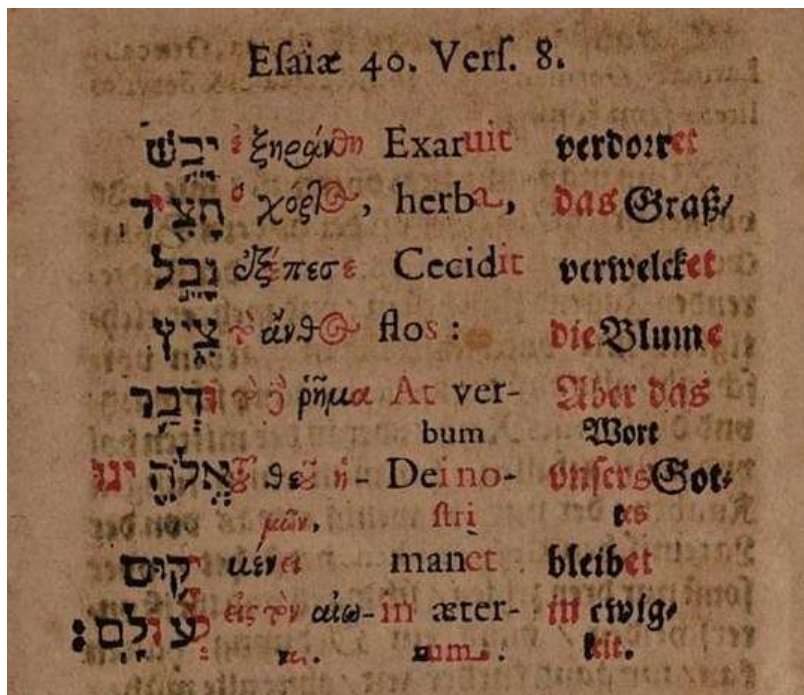 Eſaiæ 40. Verſ. 8.
יָבֵשׁ ἐξηράνθη Exaruit verdorret
חָצִיר ὁ χόρτος, herba, das Graß/
נָבֵל ἐξέπεσε Cecidit verwelcket
צִיץ τὸ ἄνθος flos : die Blume
וּדְבַר τὸ δὲ ῥῆμα At ver- Aber das
bum Wort
אֱלֹהֵינוּ τοῦ θεοῦ ἡ- Dei no- vnſers Got-
μῶν, ſtri tes
יָקוּם μένει manet bleibet
לְעוֹלָם׃ εἰς τὸν αἰῶ- in æter- in ewig-
να. num. : keit.